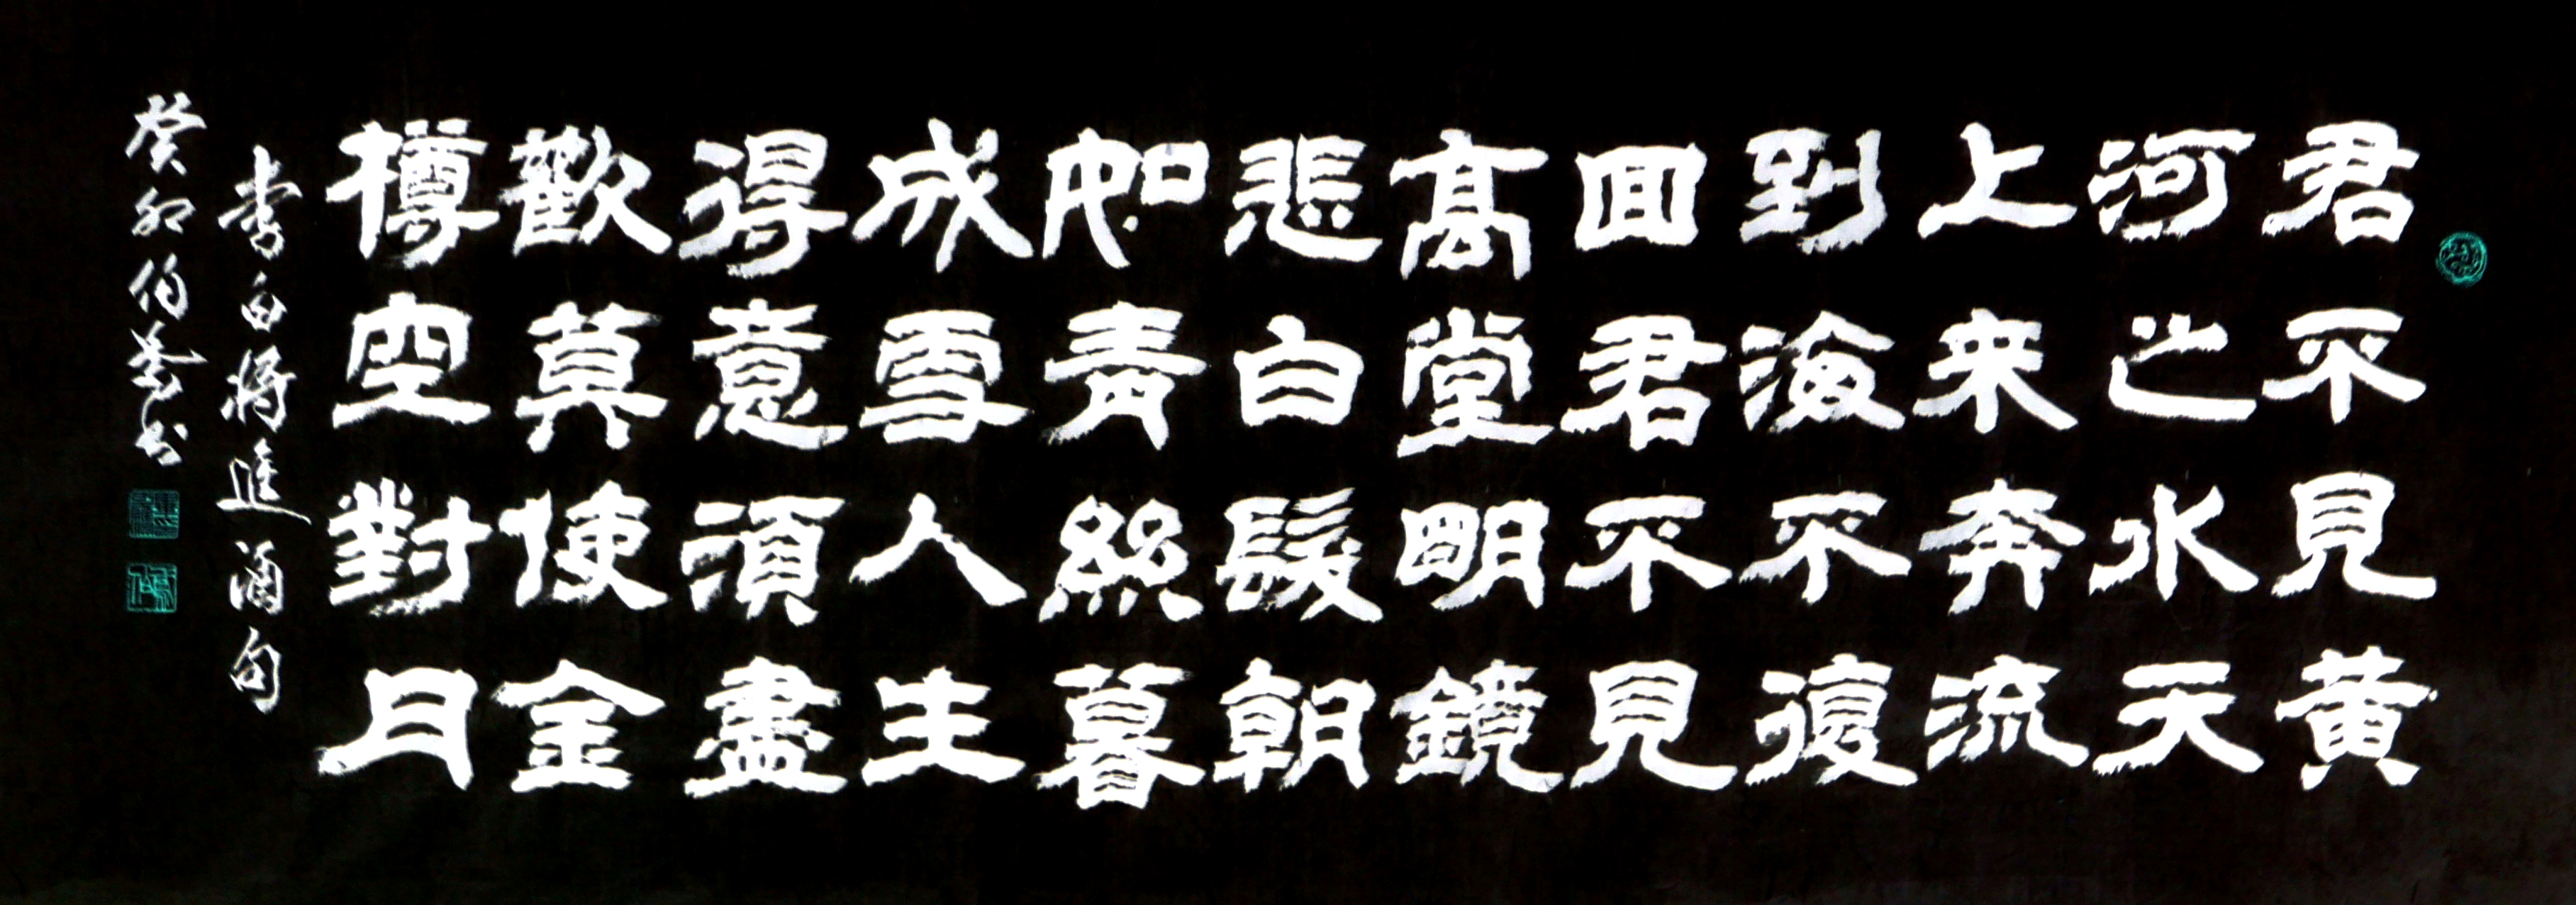 君不見黄
河之水天
上来奔流
到海不復
回君不見
高堂明鏡
悲白髮朝
如青絲暮
成雪人生
得意須盡
歡莫使金
樽空對月
李白将進酒句
癸卯伯芬书